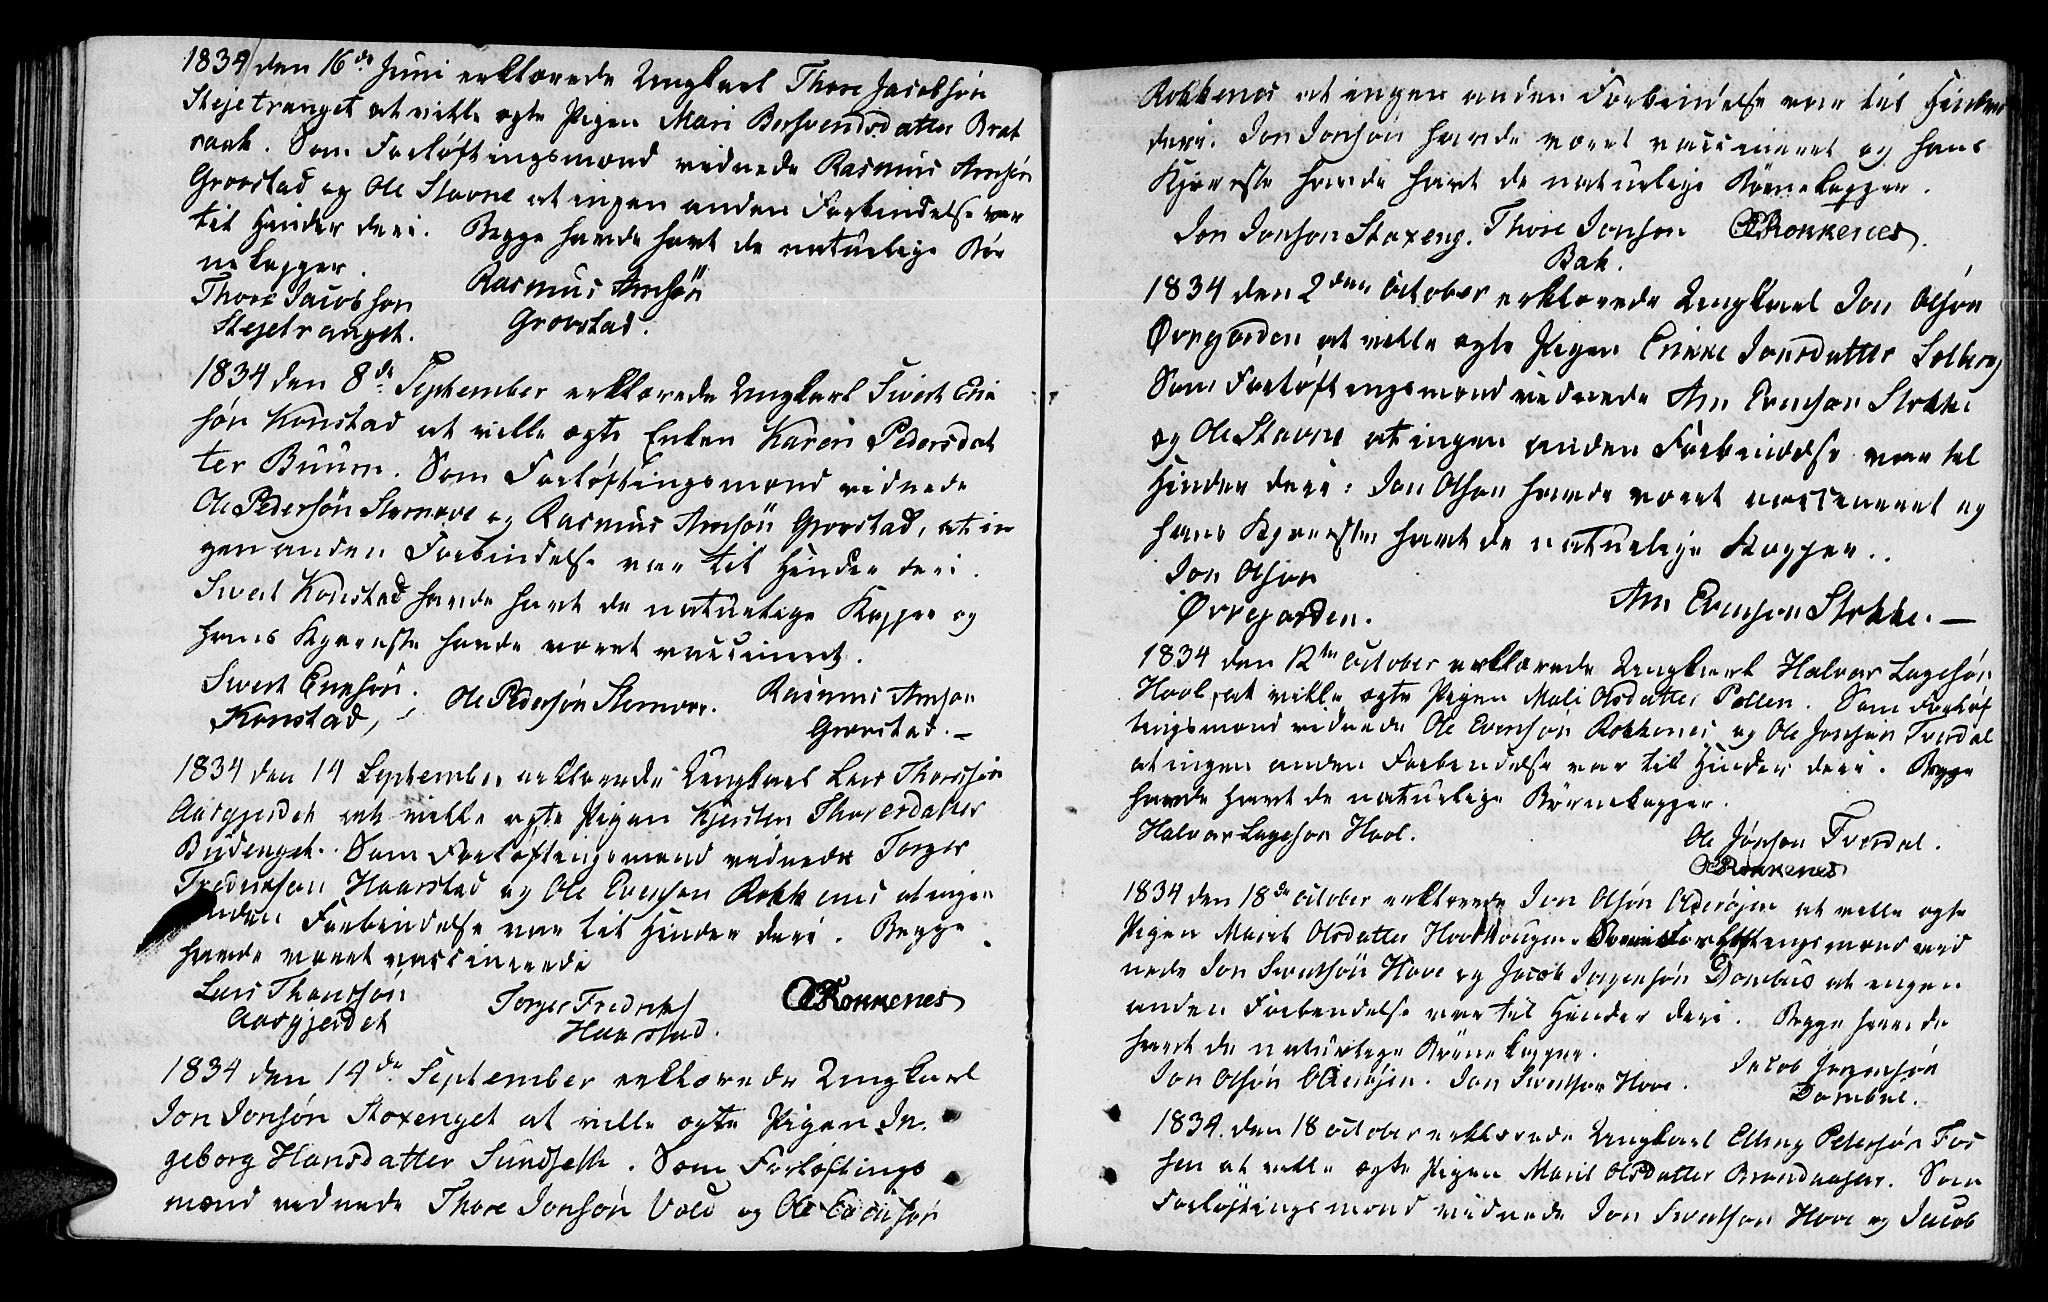 1834 den 16de Juni erklærede Ungkarl Thore Jacobsøn
Stejetranget at ville ægte Pigen Mari Bersvendsdatter Brat
raak. Som Forløftingsmænd vidnede Rasmus Arnsøn
Grovstad og Ole Stavne at ingen anden Forbindelse var
til Hinder deri. Begge havde havt de naturlige Bør
nekopper.
Thore Jacobson Rasmus Arnsön
Stejetranget. Grovstad.
1834 den 8de September erklærede Ungkarl Sivert Erik
søn Konstad at ville ægte Enken Karen Pedersdat
ter Buum. Som Forløftingsmænd vidnede
Ole Pedersøn Stamove og Rasmus Arnsön Grovstad, at in
gen anden Forbindelse var til Hinder deri.
Sivert Konstad havde havt de naturlige Kopper og
hans Kjæreste havde været vaccineret.
Sivert Eriksøn. Ole Pedersøn Rasmus Arnson
Konstad, Grovstad.
1834 den 14 September erklærede Ungkarl Lars Thoresøn
Aasgjerdet at ville ægte Pigen Kjersten Thoresdatter
Budenget. Som Forløftingsmænd vidnede Torger
Fredrikson Haarstad og Ole Evenson Rokkenes at ingen
anden Forbindelse var til Hinder deri. Begge
havde været vaccinerede
Lars Thoresøn Torger Fredriks OERokkenes
Aasgjerdet Haarstad.
1834 den 14de September erklærede Ungkarl
Jon Jonsøn Stoxenget at ville ægte Pigen In
geborg Hansdatter Sundseth. Som Forløftings
mænd vidnede Thore Jonsøn Vold og Ole Evensøn
Rokkenes at ingen anden Forbindelse var til Hinder
deri. Jon Jonsøn havde været vaccineret og hans
Kjæreste havde havt de naturlige Børnekopper.
Jon Jonson Stoxeng. Thore Jonson OERokkenes.
Bak.
1834 den 2den October erklærede Ungkarl Jon Olsøn
Øvregarden at ville ægte Pigen Jonsdatter Solberg
Som Forløftingsmænd vidnede Arn Evenson Stokke
og Ole Stavne at ingen anden Forbindelse var til
Hinder deri: Jon Olson havde været vaccineret og
hans Kjæreste havt de naturlige Kopper.
Jon Olson
Øvregarden. Arn Evenson Stokke.
1834 den 12te October erklærede Ungkarl Halvar Lagesøn
Hool, at ville ægte Pigen Mali Olsdatter Pollen. Som Forløf
tingsmænd vidnede Ole Evensøn Rokkenes og Ole Jonsøn Tverdal
at ingen anden Forbindelse var til Hinder deri. Begge
havde havt de naturlige Børnekopper.
Halvar Lageson Hool. Ole Jønson Tverdal.
OERokkenes
1834 den 18de October erklærede Jon Olsøn at ville ægte
Pigen Marit Olsdatter Hovshougen. Som Forløftingsmænd vid
nede Jon Sivertsøn Hove og Jacob Jørgensøn Dombus at ingen
anden Forbindelse var til Hinder deri. Begge havde
havt de naturlige Børnekopper.
Jon Olsøn Jon Sivertson Hove. Jacob Jørgensøn
Dombus.
1834. den 18 October erklærede Ungkarl Elling Petersøn Fos
sen at ville ægte Pigen Marit Olsdatter Brandaasen. Som
Forløftingsmænd vidnede Jon Sivertson Hove og Jacob